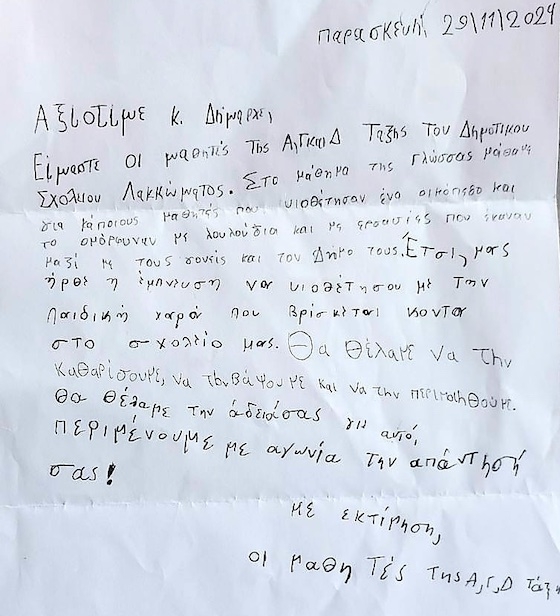 Παρασκευή 29/11/2024
Αξιότιμε κ. Δήμαρχε,
Είμαστε οι μαθητές της Α,Γ και Δ Τάξης του Δημοτικού
Σχολείου Λακκώματος. Στο μάθημα της Γλώσσας μάθαμε
για κάποιους μαθητές που υιοθέτησαν ένα οικόπεδο και
το ομόρφυναν με λουλούδια και με εργασίες που έκαναν
μαζί με τους γονείς και τον Δήμο τους. Έτσι, μας
ήρθε η έμπνευση να υιοθετήσουμε την
παιδική χαρά που βρίσκεται κοντά
στο σχολείο μας. Θα θέλαμε να την
καθαρίσουμε, να την βάψουμε και να την περιποιηθούμε.
Θα θέλαμε την άδειά σας για αυτό,
περιμένουμε με αγωνία την απάντησή
σας!
Με εκτίμηση,
οι μαθητές της Α,Γ,Δ τάξη